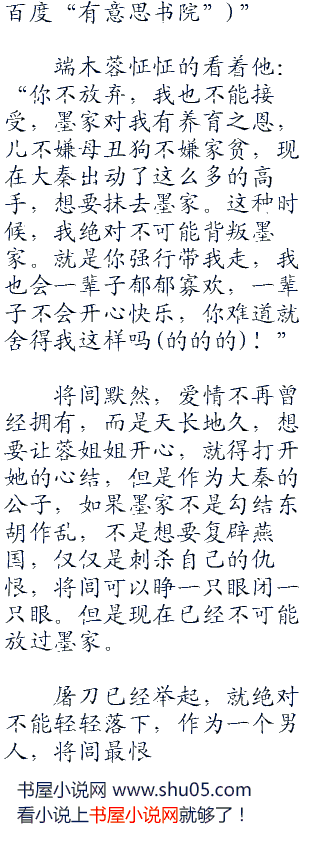 百度“有意思书院”)”
端木蓉怔怔的看着他：
“你不放弃，我也不能接
受，墨家对我有养育之恩，
儿不嫌母丑狗不嫌家贫，现
在大秦出动了这么多的高
手，想要抹去墨家。这种时
候，我绝对不可能背叛墨
家。就是你强行带我走，我
也会一辈子郁郁寡欢，一辈
子不会开心快乐，你难道就
舍得我这样吗(的的的)！”
将闾默然，爱情不再曾
经拥有，而是天长地久，想
要让蓉姐姐开心，就得打开
她的心结，但是作为大秦的
公子，如果墨家不是勾结东
胡作乱，不是想要复辟燕
国，仅仅是刺杀自己的仇
恨，将闾可以睁一只眼闭一
只眼。但是现在已经不可能
放过墨家。
屠刀已经举起，就绝对
不能轻轻落下，作为一个男
人，将闾最恨
书屋小说网 www.shu05.com
看小说上书屋小说网就够了！